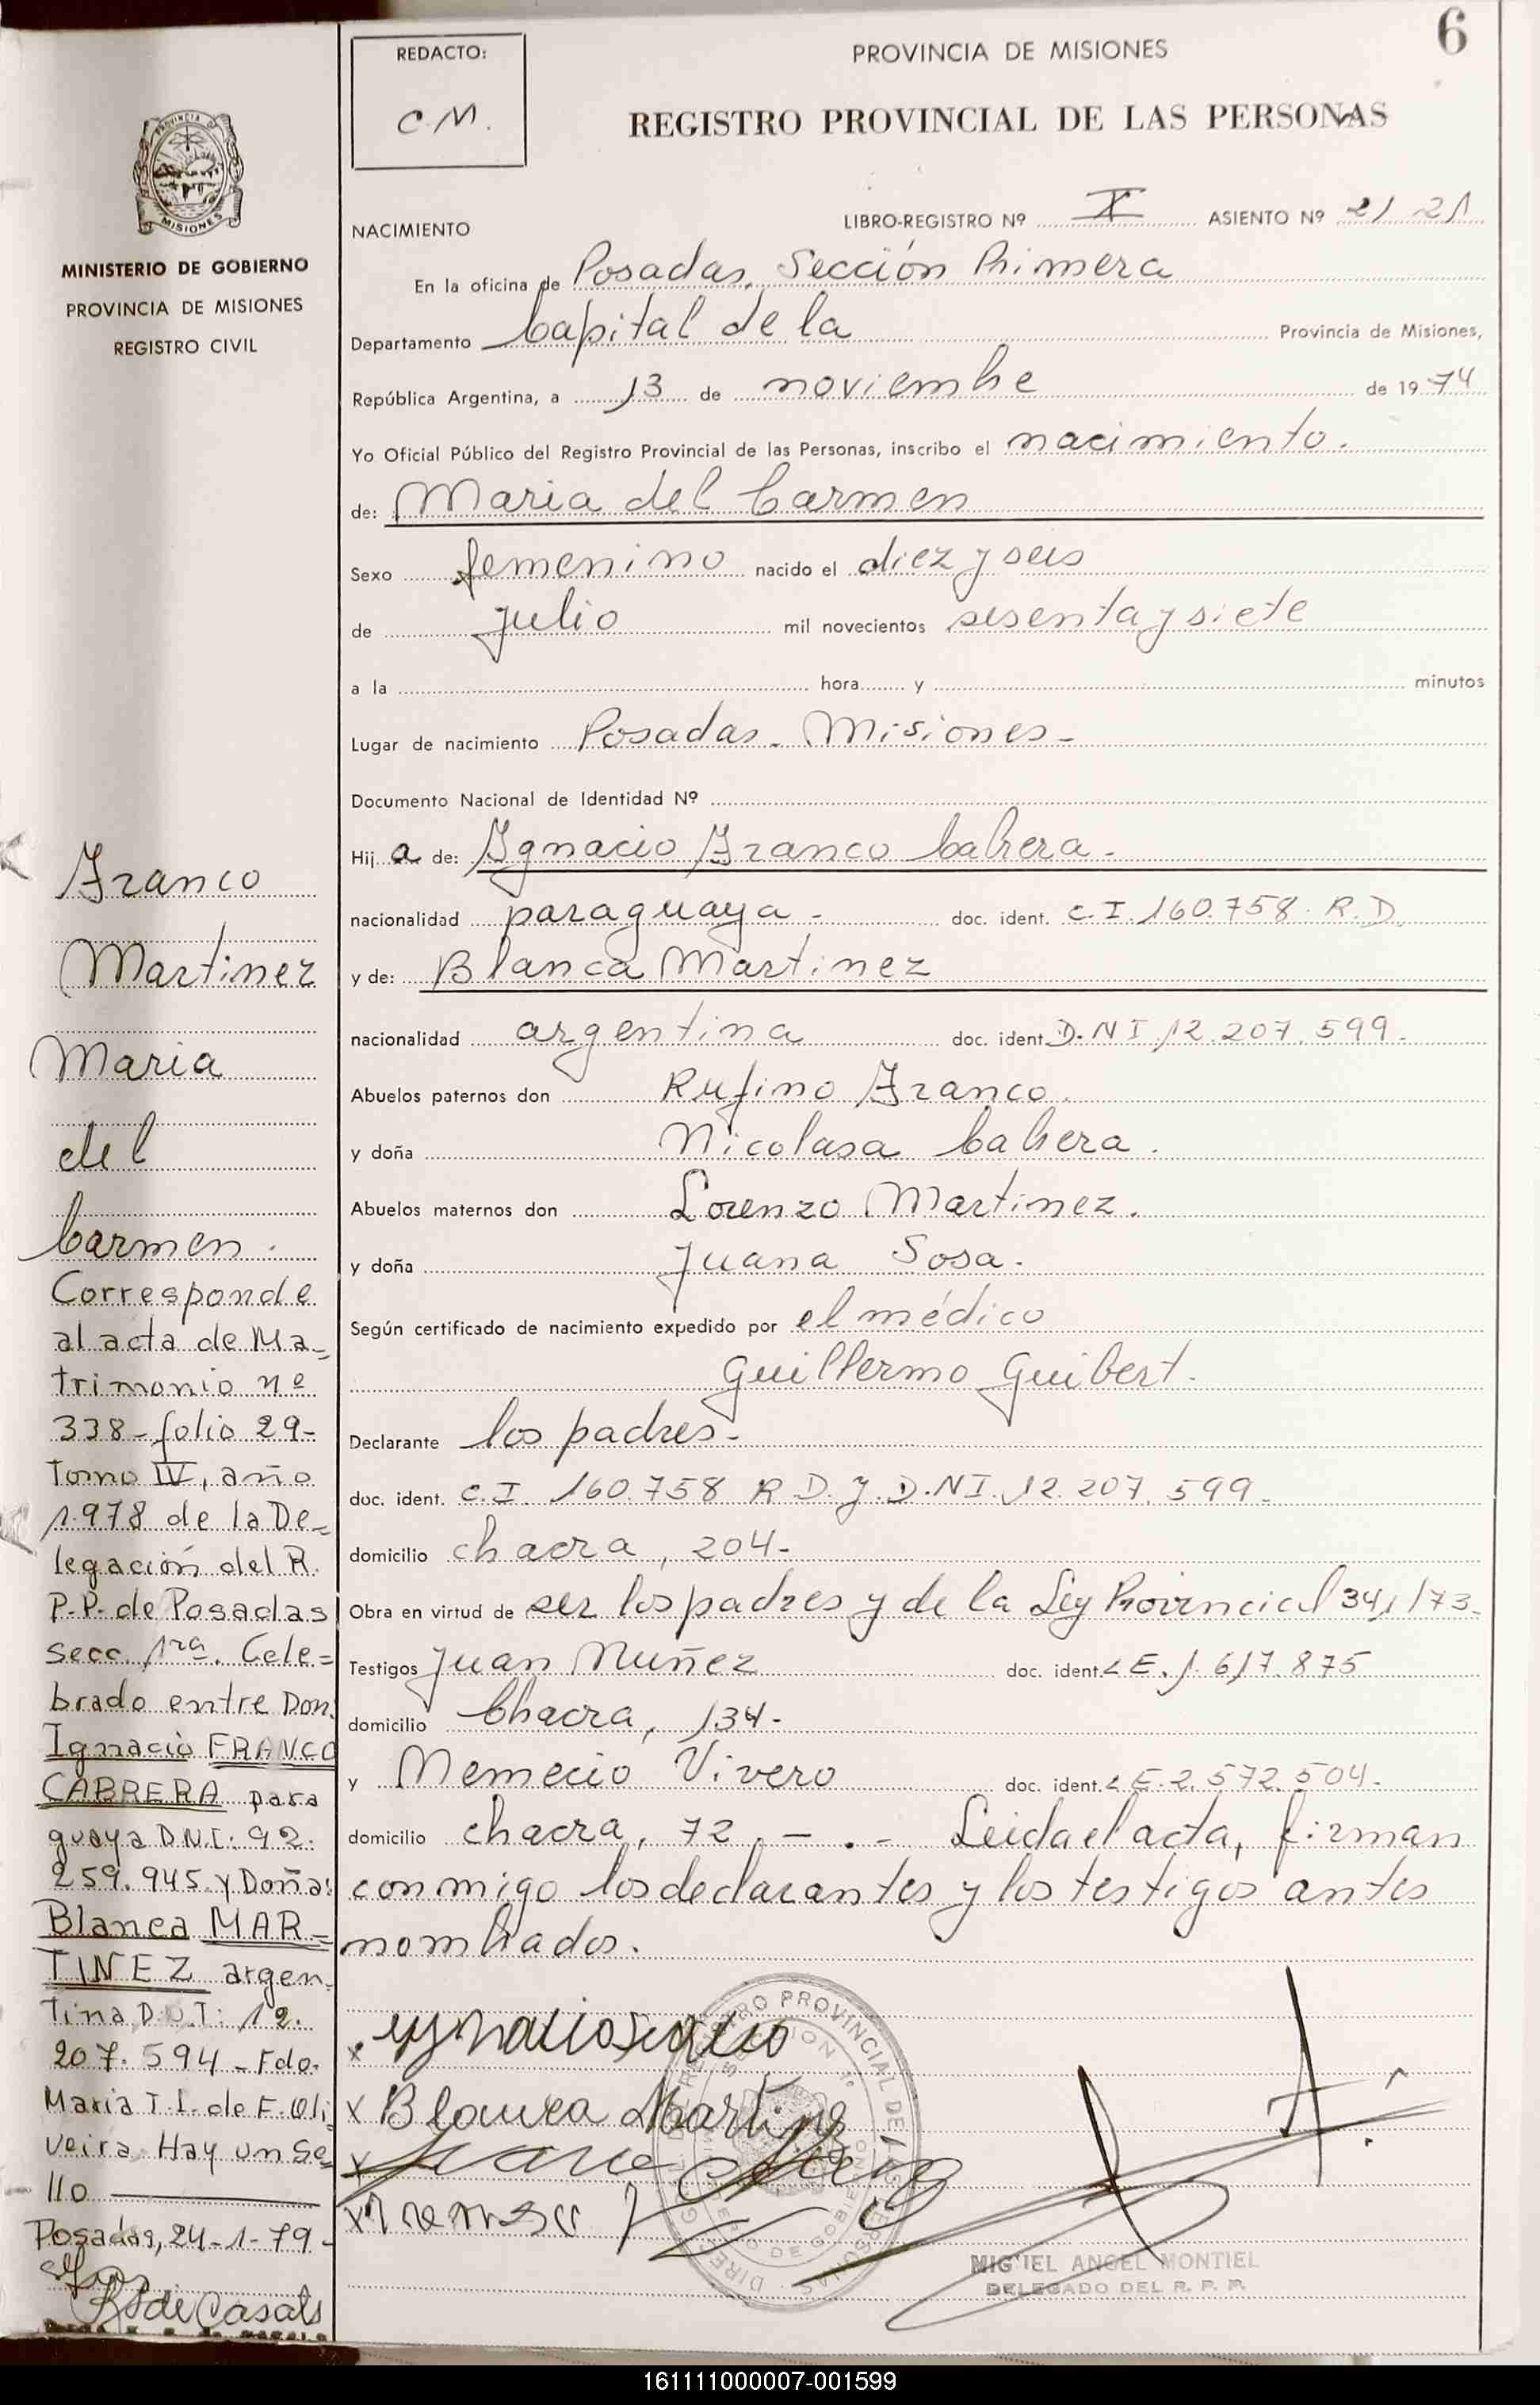 6
REDACTO:
C.M.
PROVINCIA DE MISIONES
REGISTRO PROVINCIAL DE LAS PERSONAS
PROVINCIA DE
MISIONES
MINISTERIO DE GOBIERNO
PROVINCIA DE MISIONES
REGISTRO CIVIL
NACIMIENTO
LIBRO-REGISTRO Nº X ASIENTO Nº 2121
En la oficina de Posadas, Sección Primera
Departamento Capital de la Provincia de Misiones,
República Argentina, a 13 de noviembre de 1974
Yo Oficial Público del Registro Provincial de las Personas, inscribo el nacimiento.
de: Maria del Carmen
Sexo femenino nacido el diez y seis
de julio mil novecientos sesenta y siete
a la hora y minutos
Lugar de nacimiento Posadas - Misiones -
Documento Nacional de Identidad Nº
Hij a de: Ignacio Franco Cabrera -
nacionalidad paraguaya - doc. ident. C.I. 160.758. R.D.
y de: Blanca Martinez
nacionalidad argentina doc. ident. D.NI. 12.207.599.
Abuelos paternos don Rufino Franco.
y doña Nicolasa Cabrera.
Abuelos maternos don Lorenzo Martinez.
y doña Juana Sosa.
Según certificado de nacimiento expedido por el médico
Guillermo Guibert.
Declarante los padres -
doc. ident. C.I. 160.758 R D. y D.NI. 12.207.599 -
domicilio chacra, 204 -
Obra en virtud de ser los padres y de la Ley Provincial 341/73.
Testigos Juan Nuñez doc. ident. L E. 1.617.875
domicilio Chacra, 134 -
y Memecio Vivero doc. ident. L E. 2.572.504 -
domicilio chacra, 72 . - . - Leida el acta, firman
conmigo los declarantes y los testigos antes
nombrados.
x
x Blanca Martinez
x
x
MIGUEL ANGEL MONTIEL
DELEGADO DEL R. P. P.
Franco
Martinez
Maria
del
Carmen.
Corresponde
al acta de Ma=
trimonio nº
338 - folio 29 -
Tomo IV, año
1.978 de la De=
legación del R.
P.P. de Posadas
Secc. 1ra. Cele=
brado entre Don
Ignacio FRANCO
CABRERA para
guaya D.N.I: 92.
259.945 y Doña:
Blanca MAR=
TINEZ argen=
tina D.N.I: 12.
207.594 - Fdo.
Maria T.I. de F. Oli
veira. Hay un Se=
llo
Posadas, 24-1-79 -
de Casals
161111000007-001599